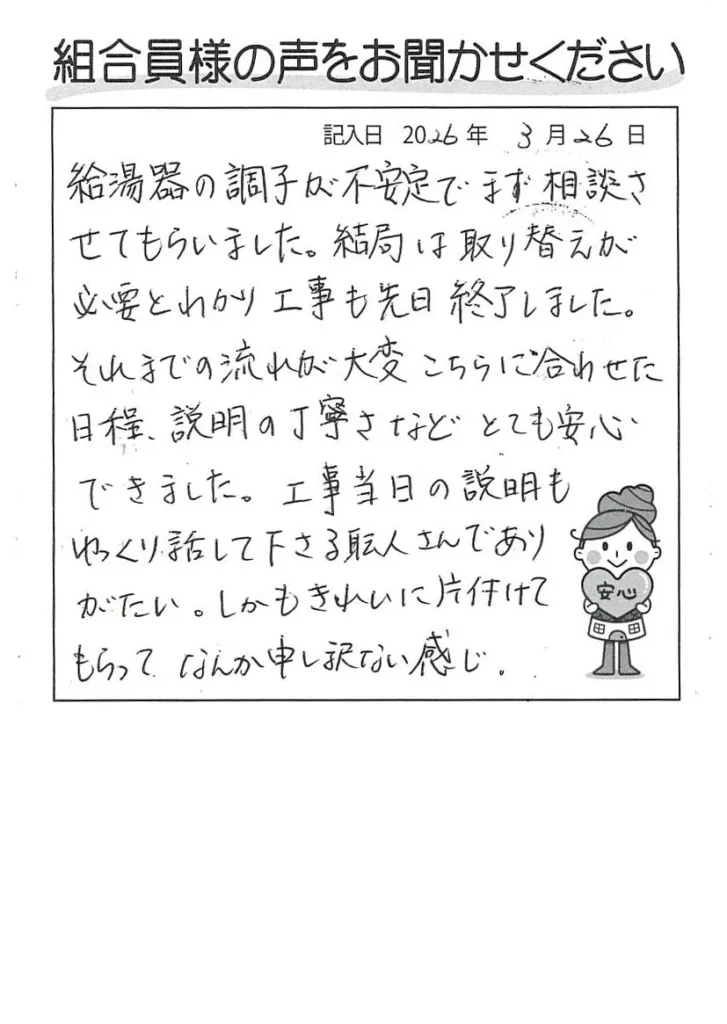 組合員様の声をお聞かせください
記入日 2026年 3月26日
給湯器の調子が不安定でまず相談さ
せてもらいました。結局は取り替えが
必要とわかり工事も先日終了しました。
それまでの流れが大変こちらに合わせた
日程、説明の丁寧さなどとても安心
できました。工事当日の説明も
ゆっくり話して下さる職人さんであり
がたい。しかもきれいに片付けて
もらってなんか申し訳ない感じ.
安心